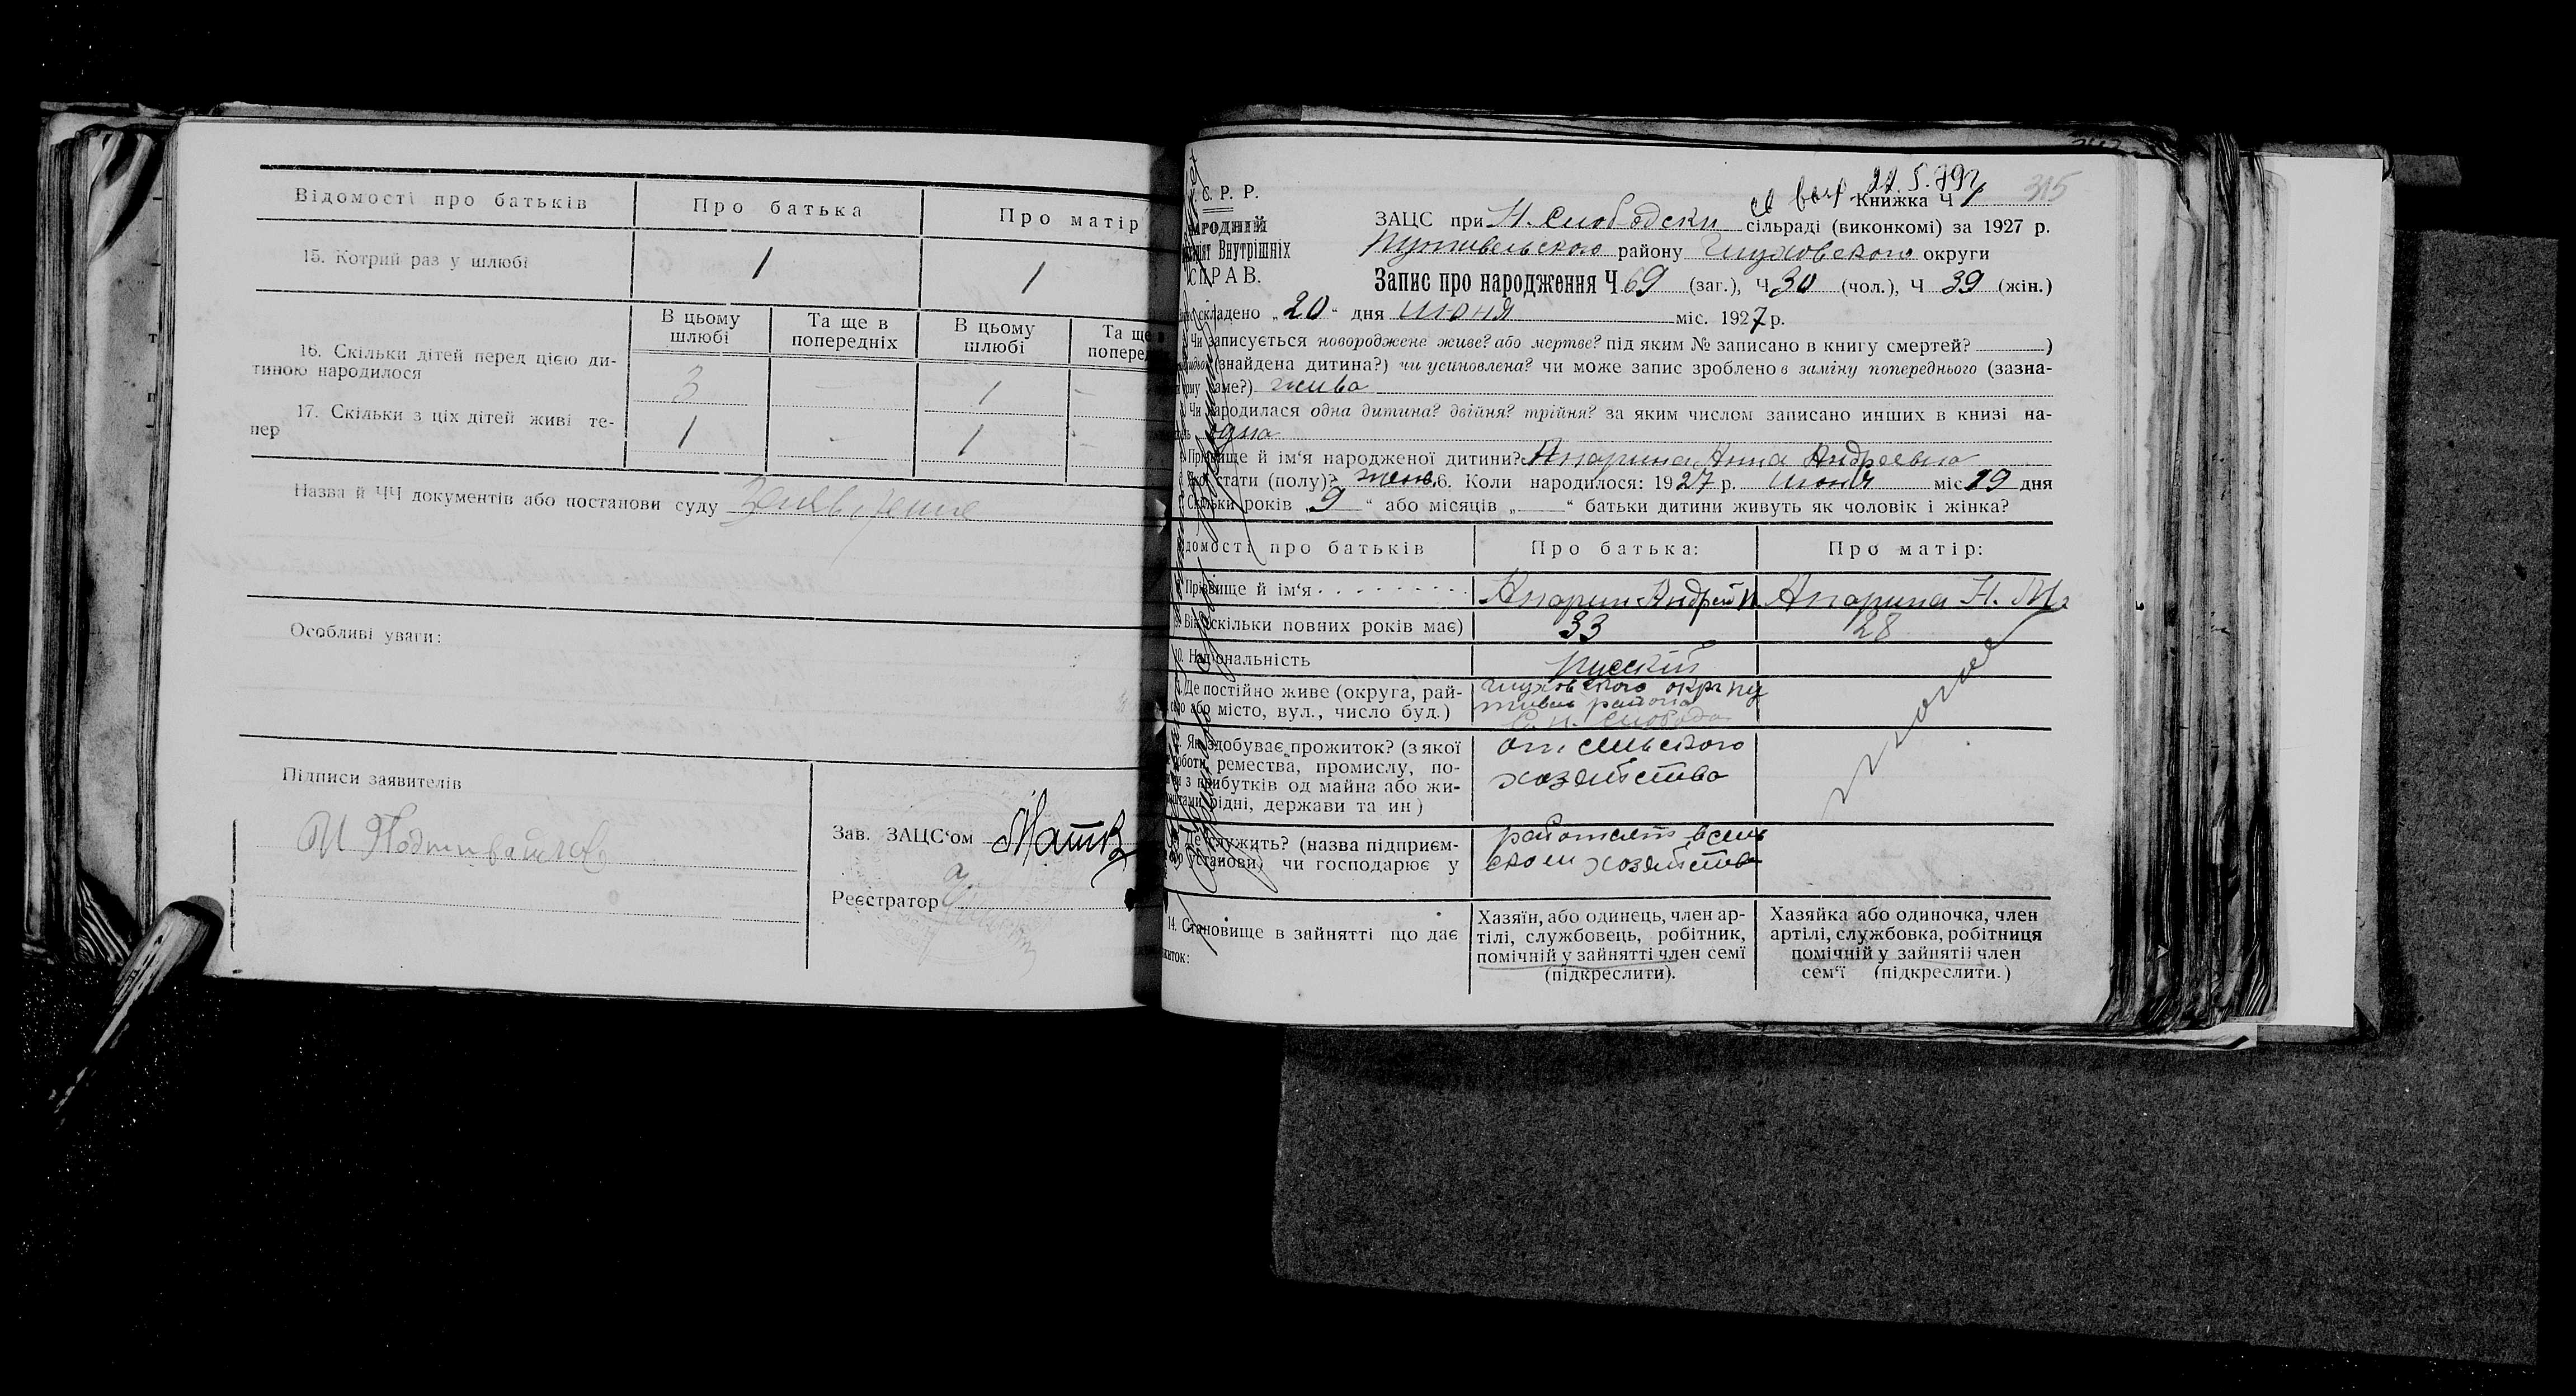 Відомості про батьків
Про батька
Про матір
15. Котрий раз у шлюбі
1
1
В цьому шлюбі
Та ще в попередніх
В цьому шлюбі
Та ще
попере
16. Скільки дітей перед цією ди-
тиною народилося
3
-
1
-
17. Скільки з ціх дітей живі те-
пер
1
-
1
-
Назва й ЧЧ документів або постанови суду
Особливі уваги:
Підписи заявителів
Зав. ЗАЦС‘ом
Реєстратор
С. Р. Р.
Внутрішніх
СПРАВ.
22.5.79г
315
Книжка Ч 1
ЗАЦС при Н. Слободски сільраді (виконкомі) за 1927 р.
Путивельского району Глуховского округи
Запис про народження Ч 69 (заг.), Ч 30 (чол.), Ч 39 (жін.)
складено „20“ дня июня міс. 1927 р.
Чи записується новороджене живе? або мертве? під яким № записано в книгу смертей? )
(знайдена дитина?) чи усиновлена? чи може запис зроблено в заміну попереднього (зазна-
жива
Чи народилася одна дитина? двійня? трійня? за яким числом записано инших в книзі на-
одна
Прізвище й ім‘я народженої дитини? Апарина Анна Андреевна
стати (полу)? жен. 6. Коли народилося: 1927 р. июня міс 19 дня
Скільки років „9“ або місяців „ “ батьки дитини живуть як чоловік і жінка?
Відомості про батьків
Про батька:
Про матір:
Прізвище й ім‘я
Апарин Андрей И.
Апарина Н. М.
Вік (скільки повних років має)
33
28
10. Національність
русский
Де постійно живе (округа, рай-
або місто, вул., число буд.)
Глуховского окр пу
тивль района
С. Н. Слобода
Як здобуває прожиток? (з якої
роботи, ремества, промислу, по-
з прибутків од майна або жи-
рідні, держави та ин)
от сельского
хозяйства
Де служить? (назва підприєм-
установи) чи господарює у
работает в сель
ском хозяйстве
14. Становище в зайнятті що дає
Хазяїн, або одинець, член ар-
тілі, службовець, робітник,
помічній у зайнятті член семї
(підкреслити).
Хазяйка або одиночка, член
артілі, службовка, робітниця
помічній у зайнятії член
сем‘ї (підкреслити.)